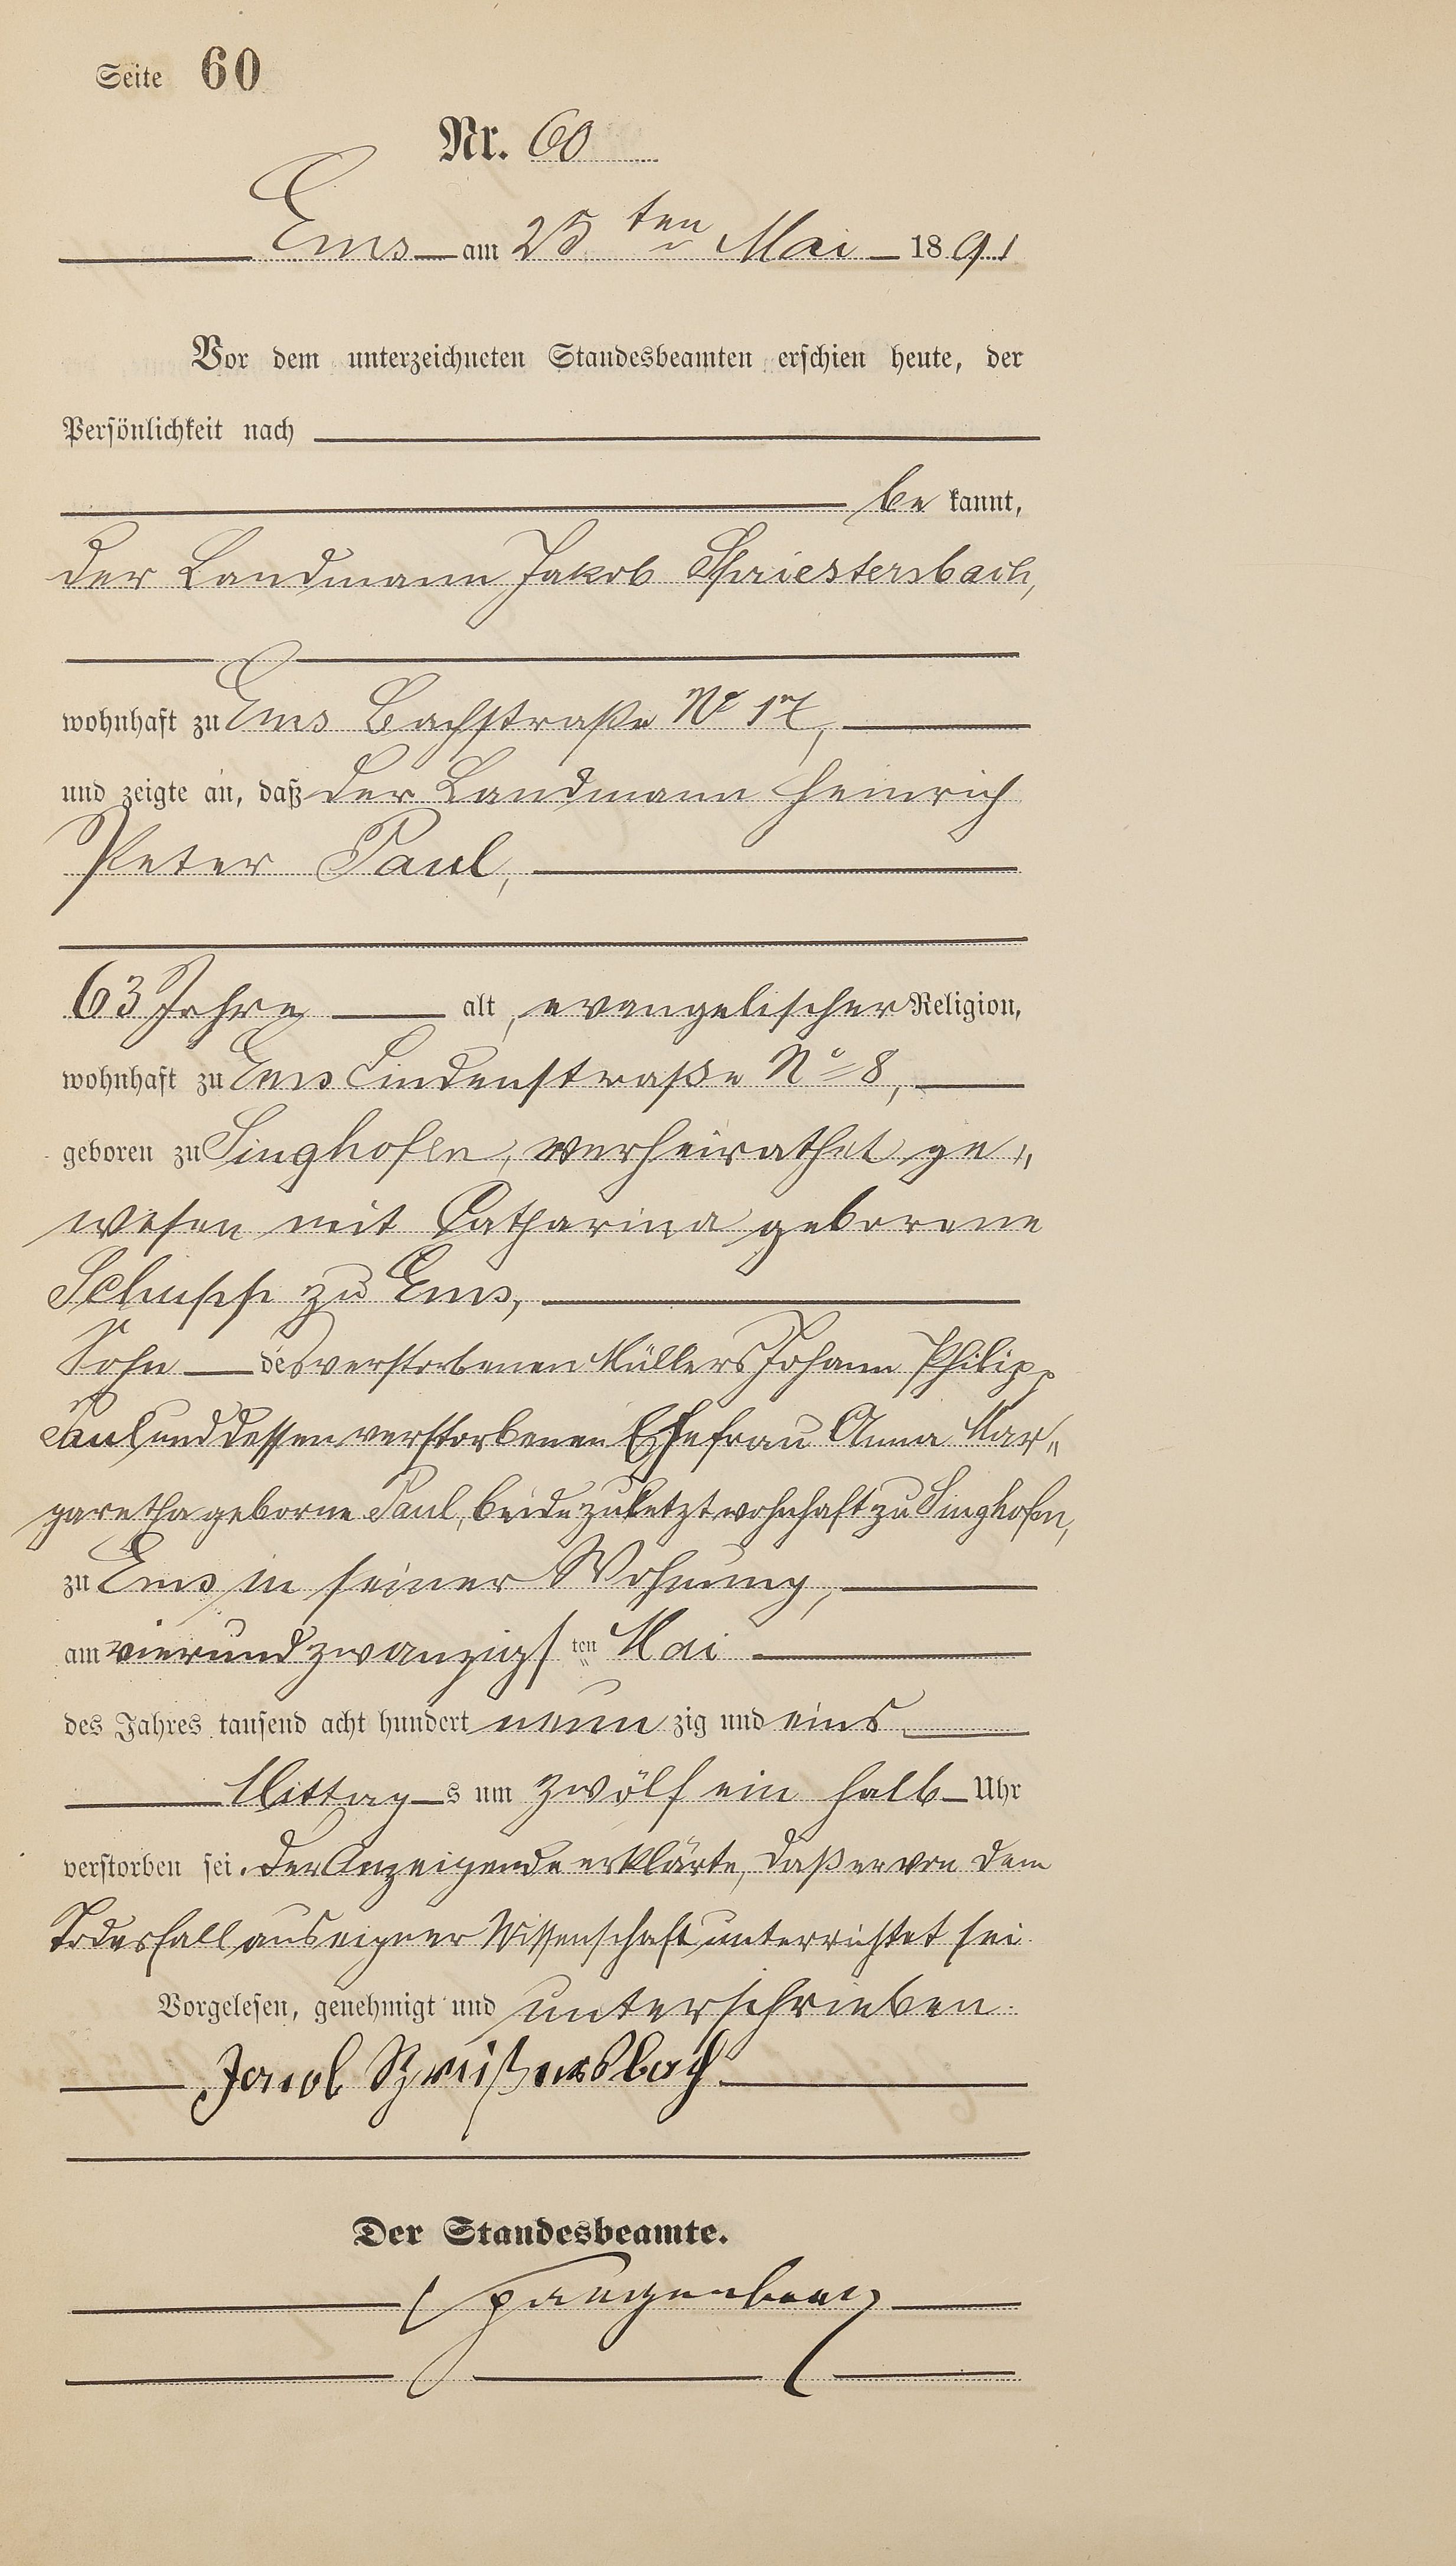 Seite 60
Nr. 60
Ems am 25ten Mai 1891
Vor dem unterzeichneten Standesbeamten erschien heute, der
Persönlichkeit nach
be kannt,
der Landmann Jakob Spriestersbach,
wohnhaft zu Ems Bachstraße No 17,
und zeigte an, daß der Landmann Heinrich
Peter Paul,
63 Jahre alt, evangelischer Religion,
wohnhaft zu Ems Lindenstraße No 8,
geboren zu Singhofen, verheirathet ge„
wesen mit Catharina geborene
Schupp zu Ems,
Sohn des verstorbenen Müllers Johann Philipp
Paul und dessen verstorbenen Ehefrau Anna Mar„
garetha geborne Paul, beide zuletzt wohnhaft zu Singhofen,
zu Ems in seiner Wohnung,
am vierundzwanzigsten Mai
des Jahres tausend acht hundert neun zig und eins
Mittags um zwölf ein halb Uhr
verstorben sei. Der Anzeigende erklärte, daß er von dem
Todesfall aus eigner Wissenschaft unterrichtet sei
Vorgelesen, genehmigt und unterschrieben.
Jacob Spriestersbach
Der Standesbeamte.
Spangenberg